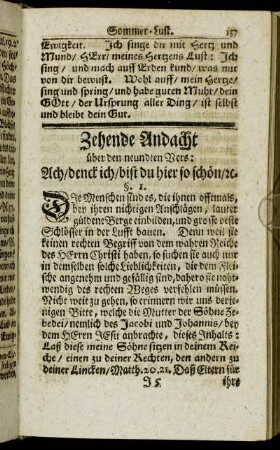 Sommer-Lust. 137
Ewigkeit. Ich singe dir mit Hertz und
Mund/ HErr/ meines Hertzens Lust: Ich
sing/ und mach auff Erden kund/ was mir
von dir bewust. Wohl auff/ mein Hertze/
sing und spring/ und habe guten Muht/ dein
GOtt/ der Ursprung aller Ding/ ist selbst
und bleibt dein Gut.
Zehende Andacht
über den neundten Vers:
Ach/ denck ich/ bist du hier so schön/ ꝛc.
§. 1.
DIe Menschen sind es, die ihnen offtmals,
bey ihren nichtigen Anschlägen, lauter
güldene Berge einbilden, und grosse veste
Schlösser in der Lufft bauen. Denn weil sie
keinen rechten Begriff von dem wahren Reiche
des HErrn Christi haben, so suchen sie auch nur
in demselben solche Lieblichkeiten, die dem Flei-
sche angenehm und gefällig sind, dahero sie noht-
wendig des rechten Weges verfehlen müssen.
Nicht weit zu gehen, so erinnern wir uns derje-
nigen Bitte, welche die Mutter der Söhne Ze-
bedei/ nemlich des Jacobi und Johannis/ bey
dem HErrn JEsu anbrachte, dieses Inhalts:
Laß diese meine Söhne sitzen in deinem Rei-
che/ einen zu deiner Rechten, den andern zu
deiner Lincken/ Matth. 20. 21. Daß Eltern für
I 5 ihre